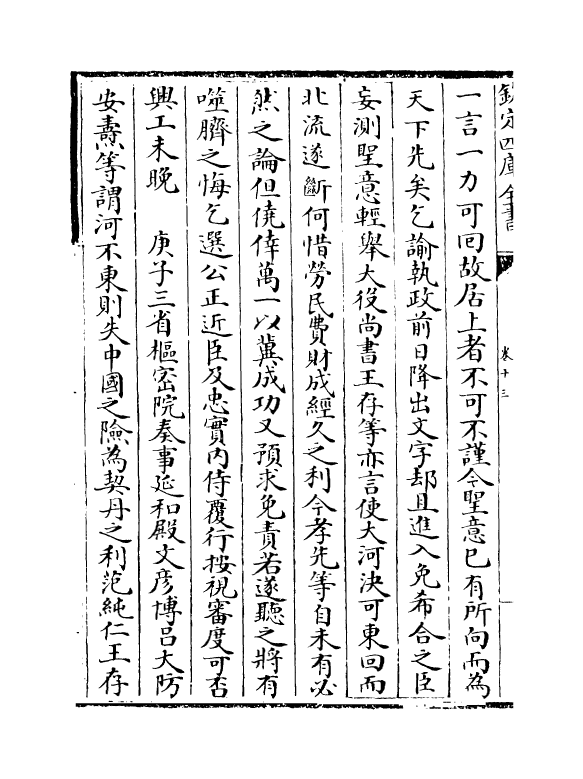 欽定四庫全書
卷十三
一言一力可回故居上者不可不謹今聖意已有所向而為
天下先矣乞諭執政前日降出文字却且進入免希合之臣
妄測聖意輕舉大役尚書王存等亦言使大河決可東回而
北流遂斷何惜勞民費財成經久之利今孝先等自未有必
然之論但僥倖萬一以冀成功又預求免責若遂聽之將有
噬臍之悔乞選公正近臣及忠實内侍覆行按視審度可否
興工未晚　庚子三省樞密院奏事延和殿文彦博吕大防
安燾等謂河不東則失中國之險為契丹之利范純仁王存